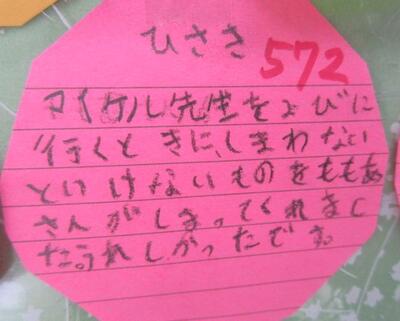 ひささ
572
マイケル先生をよびに
行くときに、しまわない
といけないものをももあ
さんがしまってくれまし
た。うれしかったです。